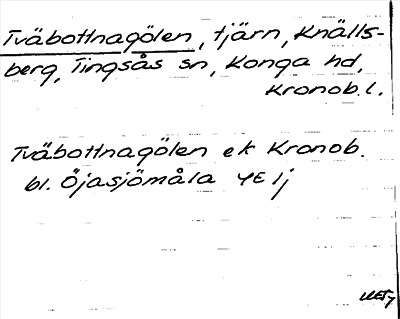 Tväbottnagölen, tjärn, Knälls-
berg, Tingsås sn, Konga hd,
Kronob. l.
Tväbottnagölen ek Kronob.
bl. Öjasjömåla 4E 1j